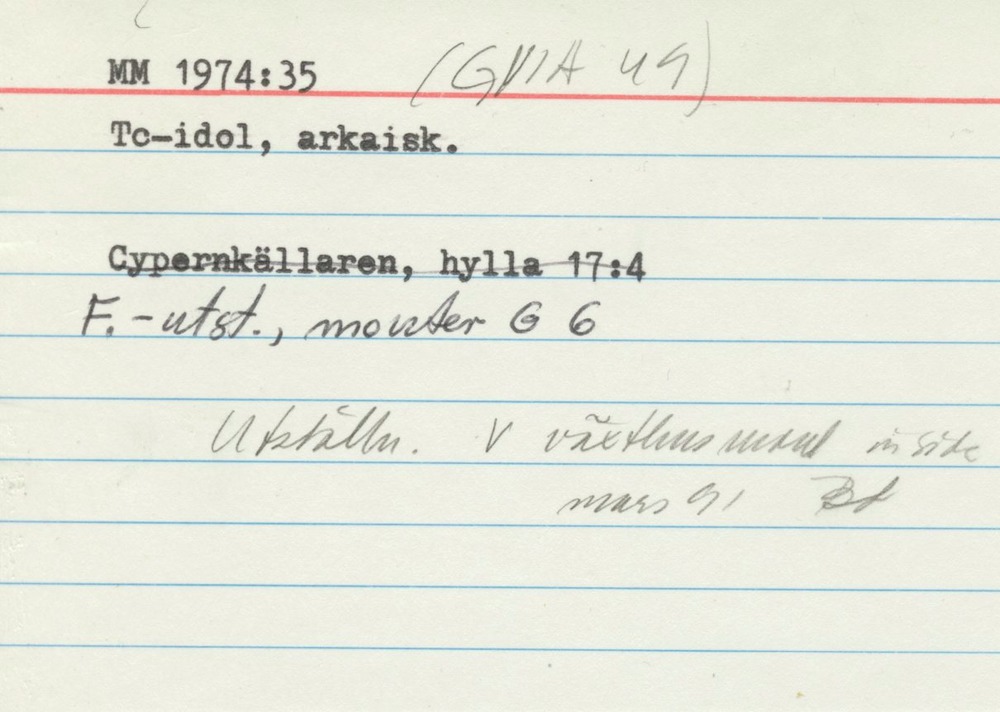 MM 1974:35 (GVIA 49)
Tc-idol, arkaisk.
Cypernkällaren, hylla 17:4
F.-utst., monter G 6
Utställn. V växthus
mars 91